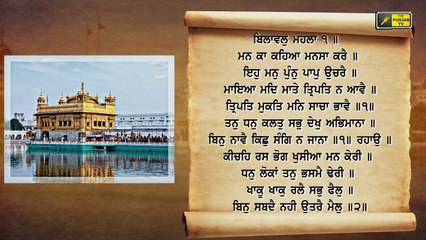 THE
PUNJAB
TV
ਬਿਲਾਵਲੁ ਮਹਲਾ ੧ ॥
ਮਨ ਕਾ ਕਹਿਆ ਮਨਸਾ ਕਰੈ ॥
ਇਹੁ ਮਨੁ ਪੁੰਨੁ ਪਾਪੁ ਉਚਰੈ ॥
ਮਾਇਆ ਮਦਿ ਮਾਤੇ ਤ੍ਰਿਪਤਿ ਨ ਆਵੈ ॥
ਤ੍ਰਿਪਤਿ ਮੁਕਤਿ ਮਨਿ ਸਾਚਾ ਭਾਵੈ ॥੧॥
ਤਨੁ ਧਨੁ ਕਲਤੁ ਸਭੁ ਦੇਖੁ ਅਭਿਮਾਨਾ ॥
ਬਿਨੁ ਨਾਵੈ ਕਿਛੁ ਸੰਗਿ ਨ ਜਾਨਾ ॥੧॥ ਰਹਾਉ ॥
ਕੀਚਹਿ ਰਸ ਭੋਗ ਖੁਸੀਆ ਮਨ ਕੇਰੀ ॥
ਧਨੁ ਲੋਕਾਂ ਤਨੁ ਭਸਮੈ ਢੇਰੀ ॥
ਖਾਕੂ ਖਾਕੁ ਰਲੈ ਸਭੁ ਫੈਲੁ ॥
ਬਿਨੁ ਸਬਦੈ ਨਹੀ ਉਤਰੈ ਮੈਲੁ ॥੨॥